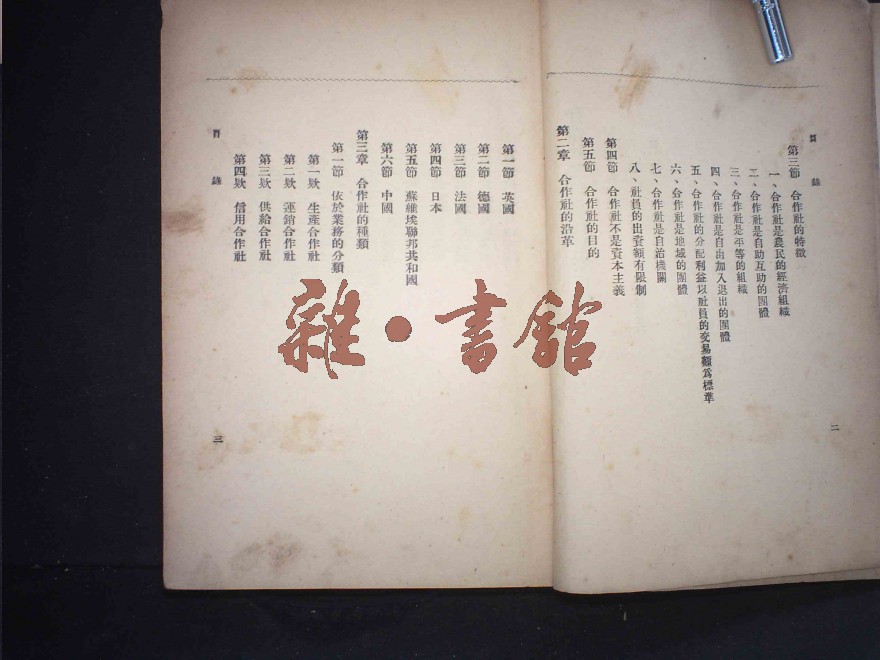 目錄
第三節　合作社的特徵
一、合作社是農民的經濟組織
二、合作社是自助互助的團體
三、合作社是平等的組織
四、合作社是自由加入退出的團體
五、合作社的分配利益以社員的交易額爲標準
六、合作社是地域的團體
七、合作社是自治機關
八、社員的出資額有限制
第四節　合作社不是資本主義
第五節　合作社的目的
第二章　合作社的沿革
二
第一節　英國
第二節　德國
第三節　法國
第四節　日本
第五節　蘇維埃聯邦共和國
第六節　中國
第三章　合作社的種類
第一節　依於業務的分類
第一欵　生產合作社
第二欵　運銷合作社
第三欵　供給合作社
第四欵　信用合作社
目錄
三
雜·書館